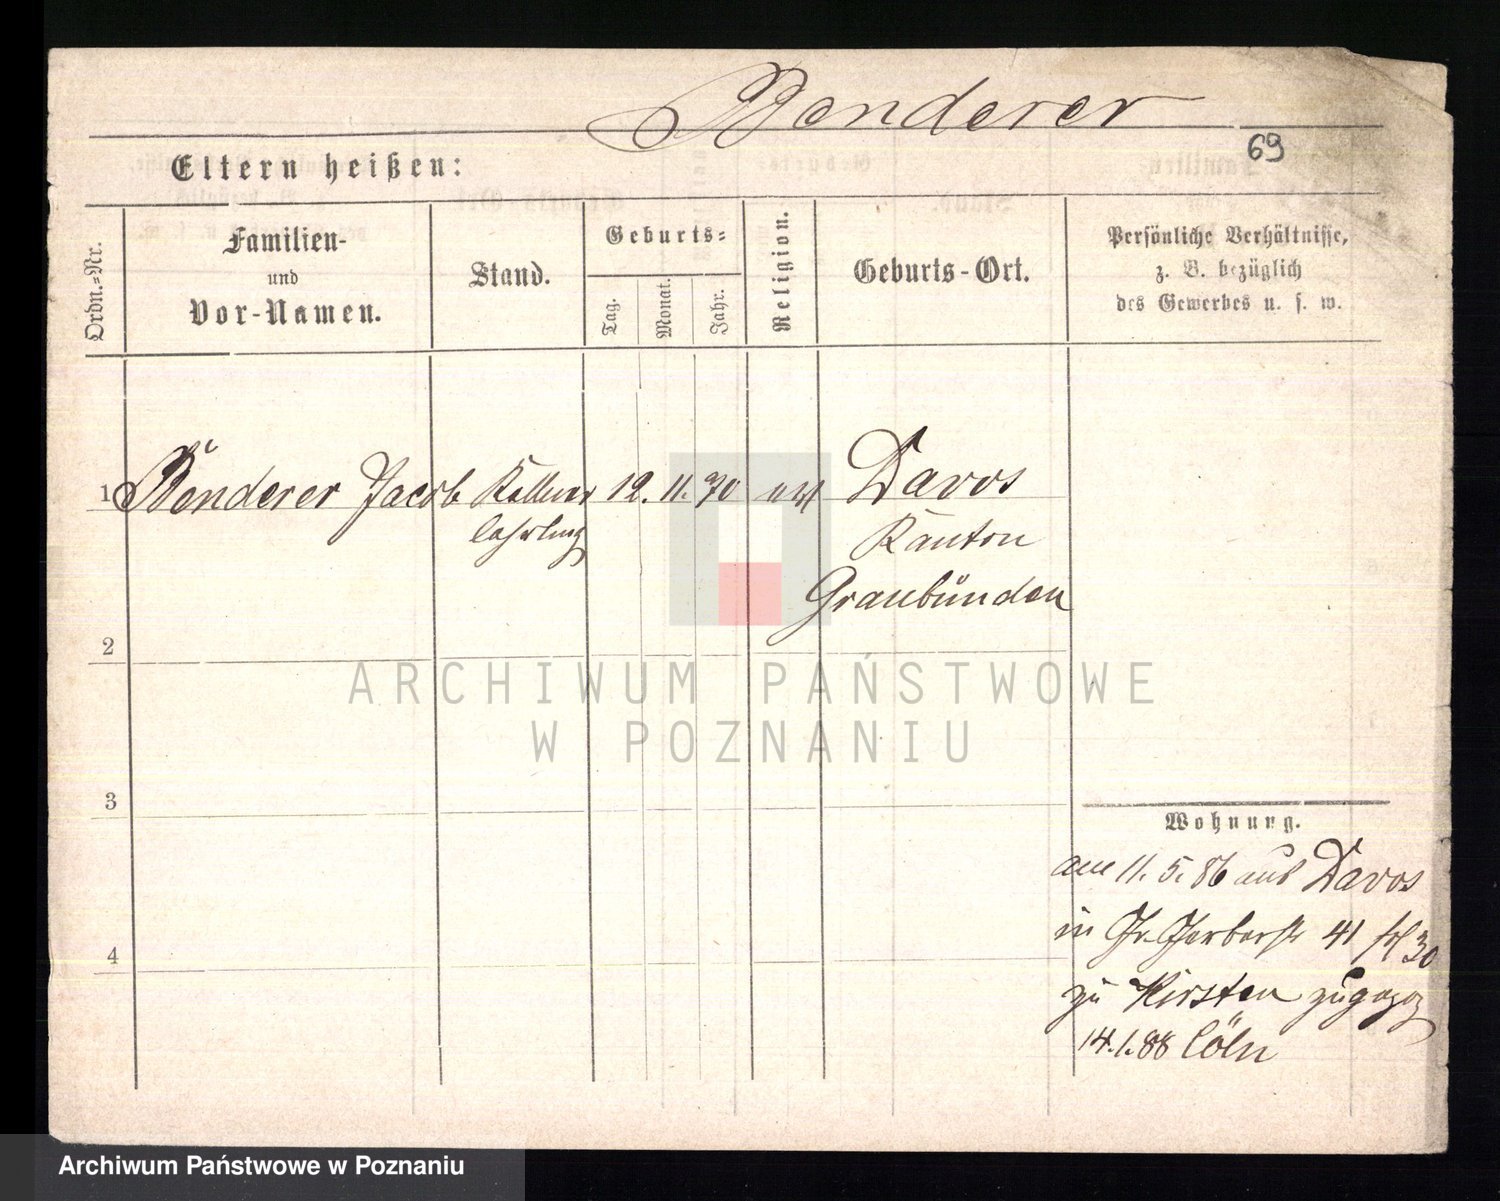 Benderer
69
Eltern heißen:
Ordn.-Nr.
Familien-
und
Vor-Namen.
Stand.
Geburts-
Tag.
Monat.
Jahr.
Religion.
Geburts-Ort.
Persönliche Verhältnisse,
z. B. bezüglich
des Gewerbes u. s. w.
1 Benderer Jacob Kellner 12. 11. 70 Davos
lehrling Kanton
Graubünden
2
ARCHIWUM PAŃSTWOWE
W POZNANIU
3
Wohnung.
am 11. 5. 86 aus Davos
in Gr. Gerberstr 41
4
zu Kirsten
14. 1. 88 Cöln
Archiwum Państwowe w Poznaniu